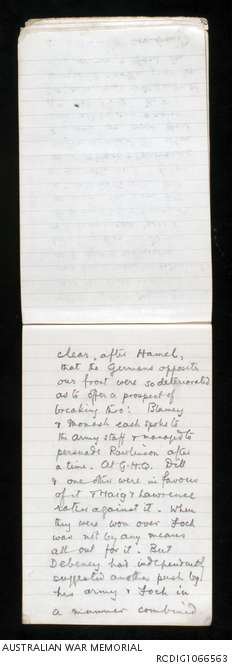 clear, after Hamel,
that the Germans opposite
our front were so deteriorated
as to offer a prospect of
breaking thro': Blamey
& Monash each spoke to
the Army staff & managed to
persuade Rawlinson after
a time. At G.H.Q. Dill
& one other were in favour
of it & Haig & Lawrence
rather against it. When
they were won over Foch
was all by any means
all out for it. But
Debeney had independently
suggested another push by
his army & Foch in
a manner combined
AUSTRALIAN WAR MEMORIAL
RCDIG1066563